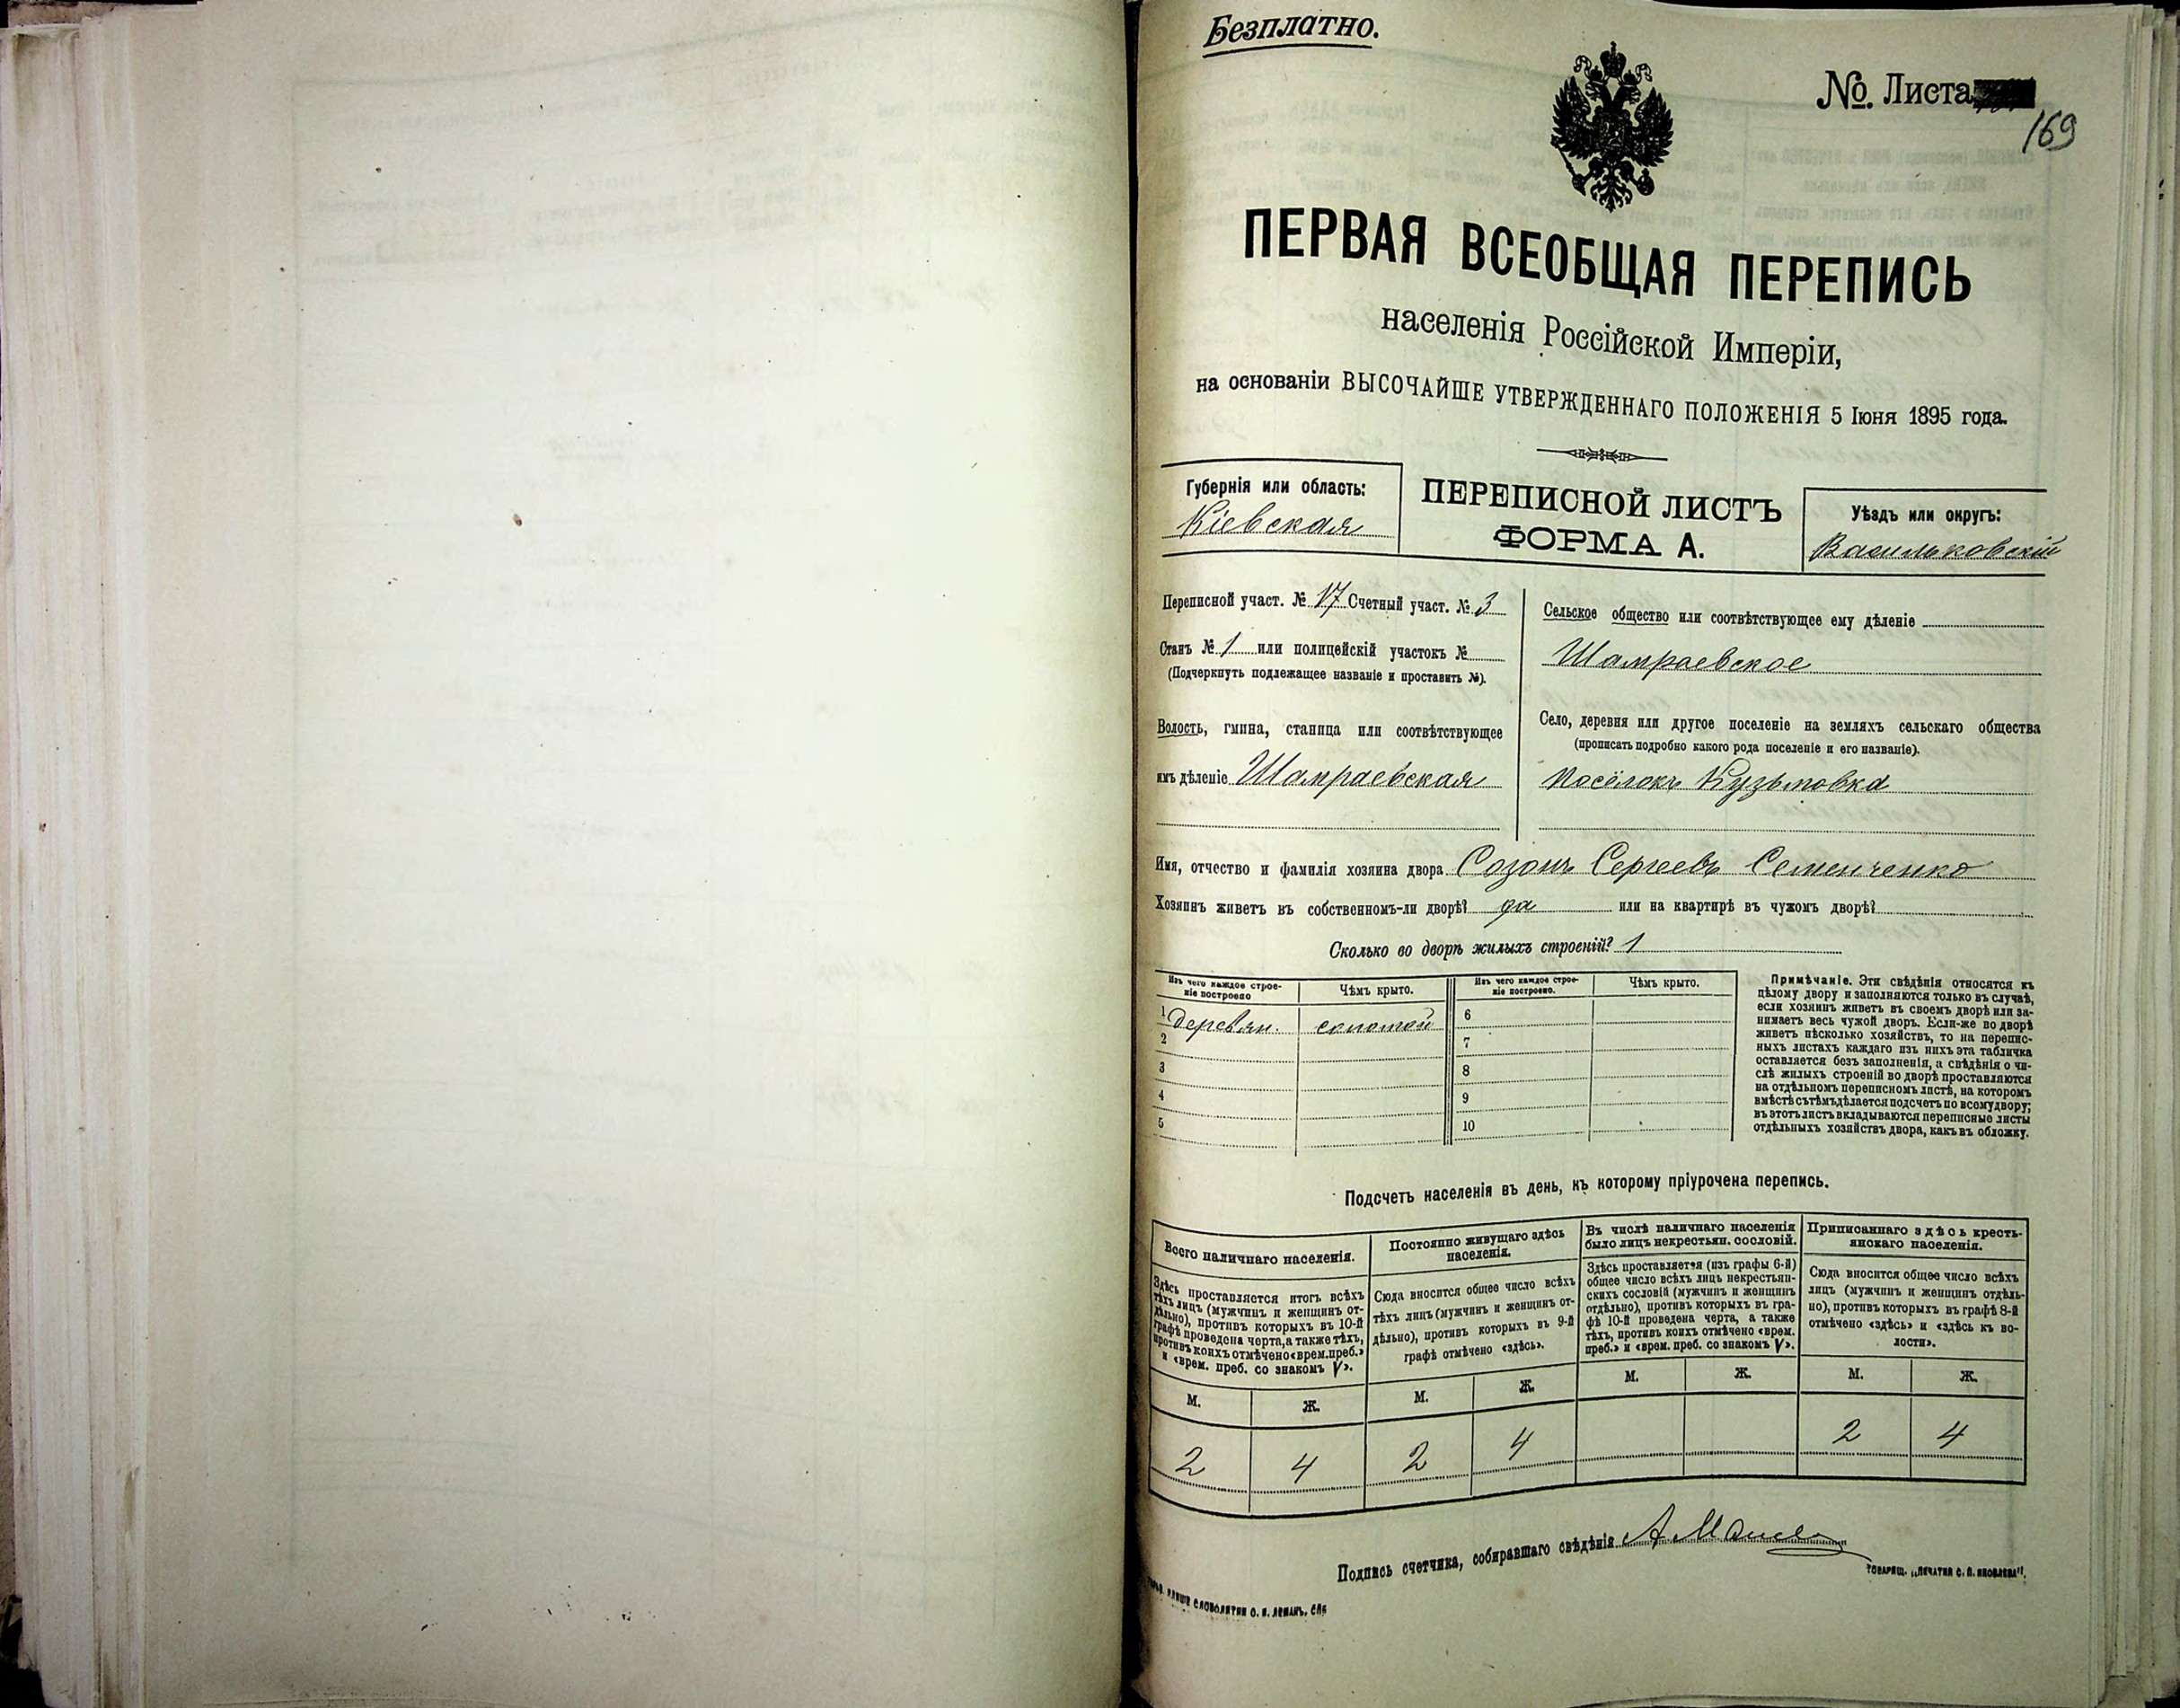 Безплатно.
№. Листа
169
ПЕРВАЯ ВСЕОБЩАЯ ПЕРЕПИСЬ
населенія Россійской Имперіи,
на основаніи ВЫСОЧАЙШЕ УТВЕРЖДЕННАГО ПОЛОЖЕНІЯ 5 Іюня 1895 года.
Губернія или область:
Кіевская
ПЕРЕПИСНОЙ ЛИСТЪ
ФОРМА А.
Уѣздъ или округъ:
Васильковскій
Переписной участ. № 17 Счетный участ. № 3
Станъ № 1 или полицейскій участокъ №
(Подчеркнуть подлежащее названіе и проставить №).
Волость, гмина, станица или соотвѣтствующее
имъ дѣленіе Шамраевская
Сельское общество или соотвѣтствующее ему дѣленіе
Шамраевское
Село, деревня или другое поселеніе на земляхъ сельскаго общества
(прописать подробно какого рода поселеніе и его названіе).
посёлокъ Кузьмовка
Имя, отчество и фамилія хозяина двора Созонъ Сергеевъ Семенченко
Хозяинъ живетъ въ собственномъ-ли дворѣ? да или на квартирѣ въ чужомъ дворѣ?
Сколько во дворѣ жилыхъ строеній? 1
Изъ чего каждое строе-
ніе построено
Чѣмъ крыто.
Изъ чего каждое строе-
ніе построено.
Чѣмъ крыто.
1 деревян. соломой 6
2 7
3 8
4 9
5 10
Примѣчаніе. Эти свѣдѣнія относятся къ
цѣлому двору и заполняются только въ случаѣ,
если хозяинъ живетъ въ своемъ дворѣ или за-
нимаетъ весь чужой дворъ. Если-же во дворѣ
живетъ нѣсколько хозяйствъ, то на перепис-
ныхъ листахъ каждаго изъ нихъ эта табличка
оставляется безъ заполненія, а свѣдѣнія о чи-
слѣ жилыхъ строеній во дворѣ проставляются
на отдѣльномъ переписномъ листѣ, на которомъ
вмѣстѣ съ тѣмъ дѣлается подсчетъ по всему двору;
въ этотъ листъ вкладываются переписные листы
отдѣльныхъ хозяйствъ двора, какъ въ обложку.
Подсчетъ населенія въ день, къ которому пріурочена перепись.
Всего наличнаго населенія.
Здѣсь проставляется итогъ всѣхъ
тѣхъ лицъ (мужчинъ и женщинъ от-
дѣльно), противъ которыхъ въ 10-й
графѣ проведена черта, а также тѣхъ,
противъ коихъ отмѣчено «врем. преб.»
и «врем. преб. со знакомъ V».
Постоянно живущаго здѣсь
населенія.
Сюда вносится общее число всѣхъ
тѣхъ лицъ (мужчинъ и женщинъ от-
дѣльно), противъ которыхъ въ 9-й
графѣ отмѣчено «здѣсь».
Въ числѣ наличнаго населенія
было лицъ некрестьян. сословій.
Здѣсь проставляется (изъ графы 6-й)
общее число всѣхъ лицъ некрестьян-
скихъ сословій (мужчинъ и женщинъ
отдѣльно), противъ которыхъ въ гра-
фѣ 10-й проведена черта, а также
тѣхъ, противъ коихъ отмѣчено «врем.
преб.» и «врем. преб. со знакомъ V».
Приписаннаго здѣсь кресть-
янскаго населенія.
Сюда вносится общее число всѣхъ
лицъ (мужчинъ и женщинъ отдѣль-
но), противъ которыхъ въ графѣ 8-й
отмѣчено «здѣсь» и «здѣсь къ во-
лости».
М. Ж. М. Ж. М. Ж. М. Ж.
2 4 2 4 2 4
Подпись счетчика, собиравшаго свѣдѣнія
ТОВАРИЩ. „ПЕЧАТНЯ С. П. ЯКОВЛЕВА".
СЛОВОЛИТНИ О. И. ЛЕМАНЪ, СПБ